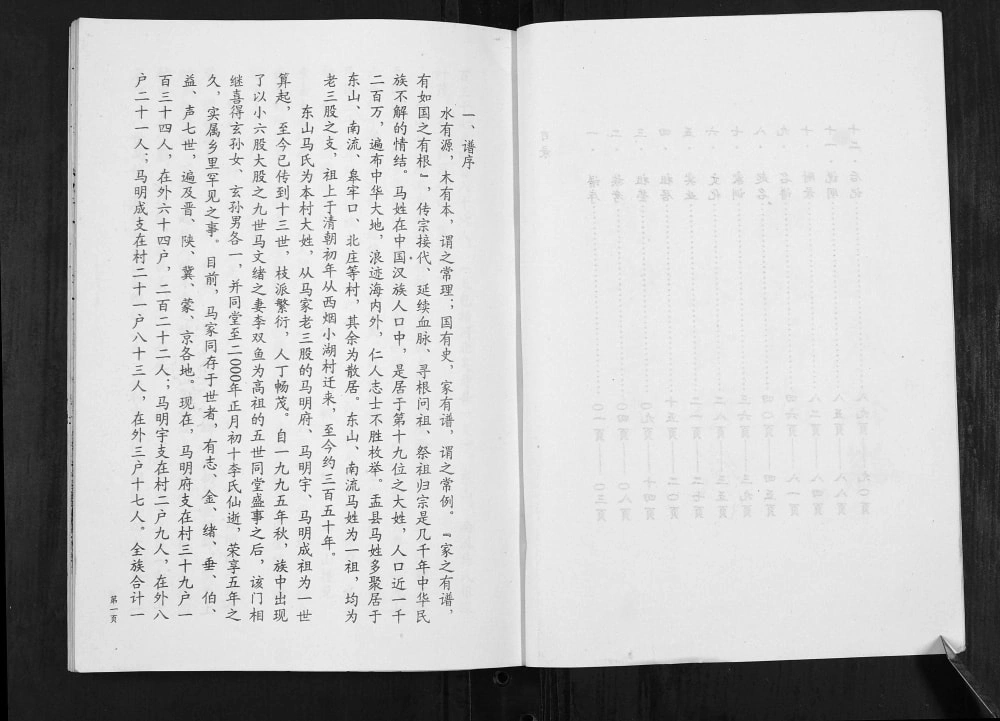 一、谱序
水有源，木有本，谓之常理；国有史，家有谱，谓之常例。『家之有谱，
有如国之有根』，传宗接代、延续血脉、寻根问祖、祭祖归宗是几千年中华民
族不解的情结。马姓在中国汉族人口中，是居于第十九位之大姓，人口近一千
二百万，遍布中华大地，浪迹海内外，仁人志士不胜枚举。盂县马姓多聚居于
东山、南流、皋牢口、北庄等村，其余为散居。东山、南流马姓为一祖，均为
老三股之支，祖上于清朝初年从西烟小湖村迁来，至今约三百五十年。
东山马氏为本村大姓，从马家老三股的马明府、马明宇、马明成祖为一世
算起，至今已传到十三世，枝派繁衍，人丁畅茂。自一九九五年秋，族中出现
了以小六股大股之九世马文绪之妻李双鱼为高祖的五世同堂盛事之后，该门相
继喜得玄孙女、玄孙男各一，并同堂至二000年正月初十李氏仙逝，荣享五年之
久，实属乡里罕见之事。目前，马家同存于世者，有志、金、绪、垂、伯、
益、声七世，遍及晋、陕、冀、蒙、京各地。现在，马明府支在村三十九户一
百三十四人，在外六十四户，二百二十二人；马明宇支在村二户九人，在外八
户二十一人；马明成支在村二十一户八十三人，在外三户十七人。全族合计一
第一页